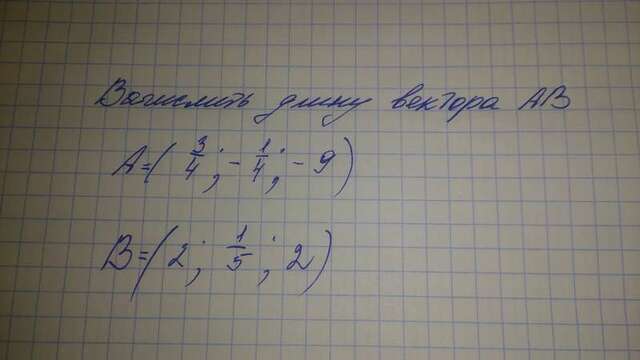 Вычислить длину вектора AB
A=(3/4; -1/4; -9)
B=(2; 1/5; 2)